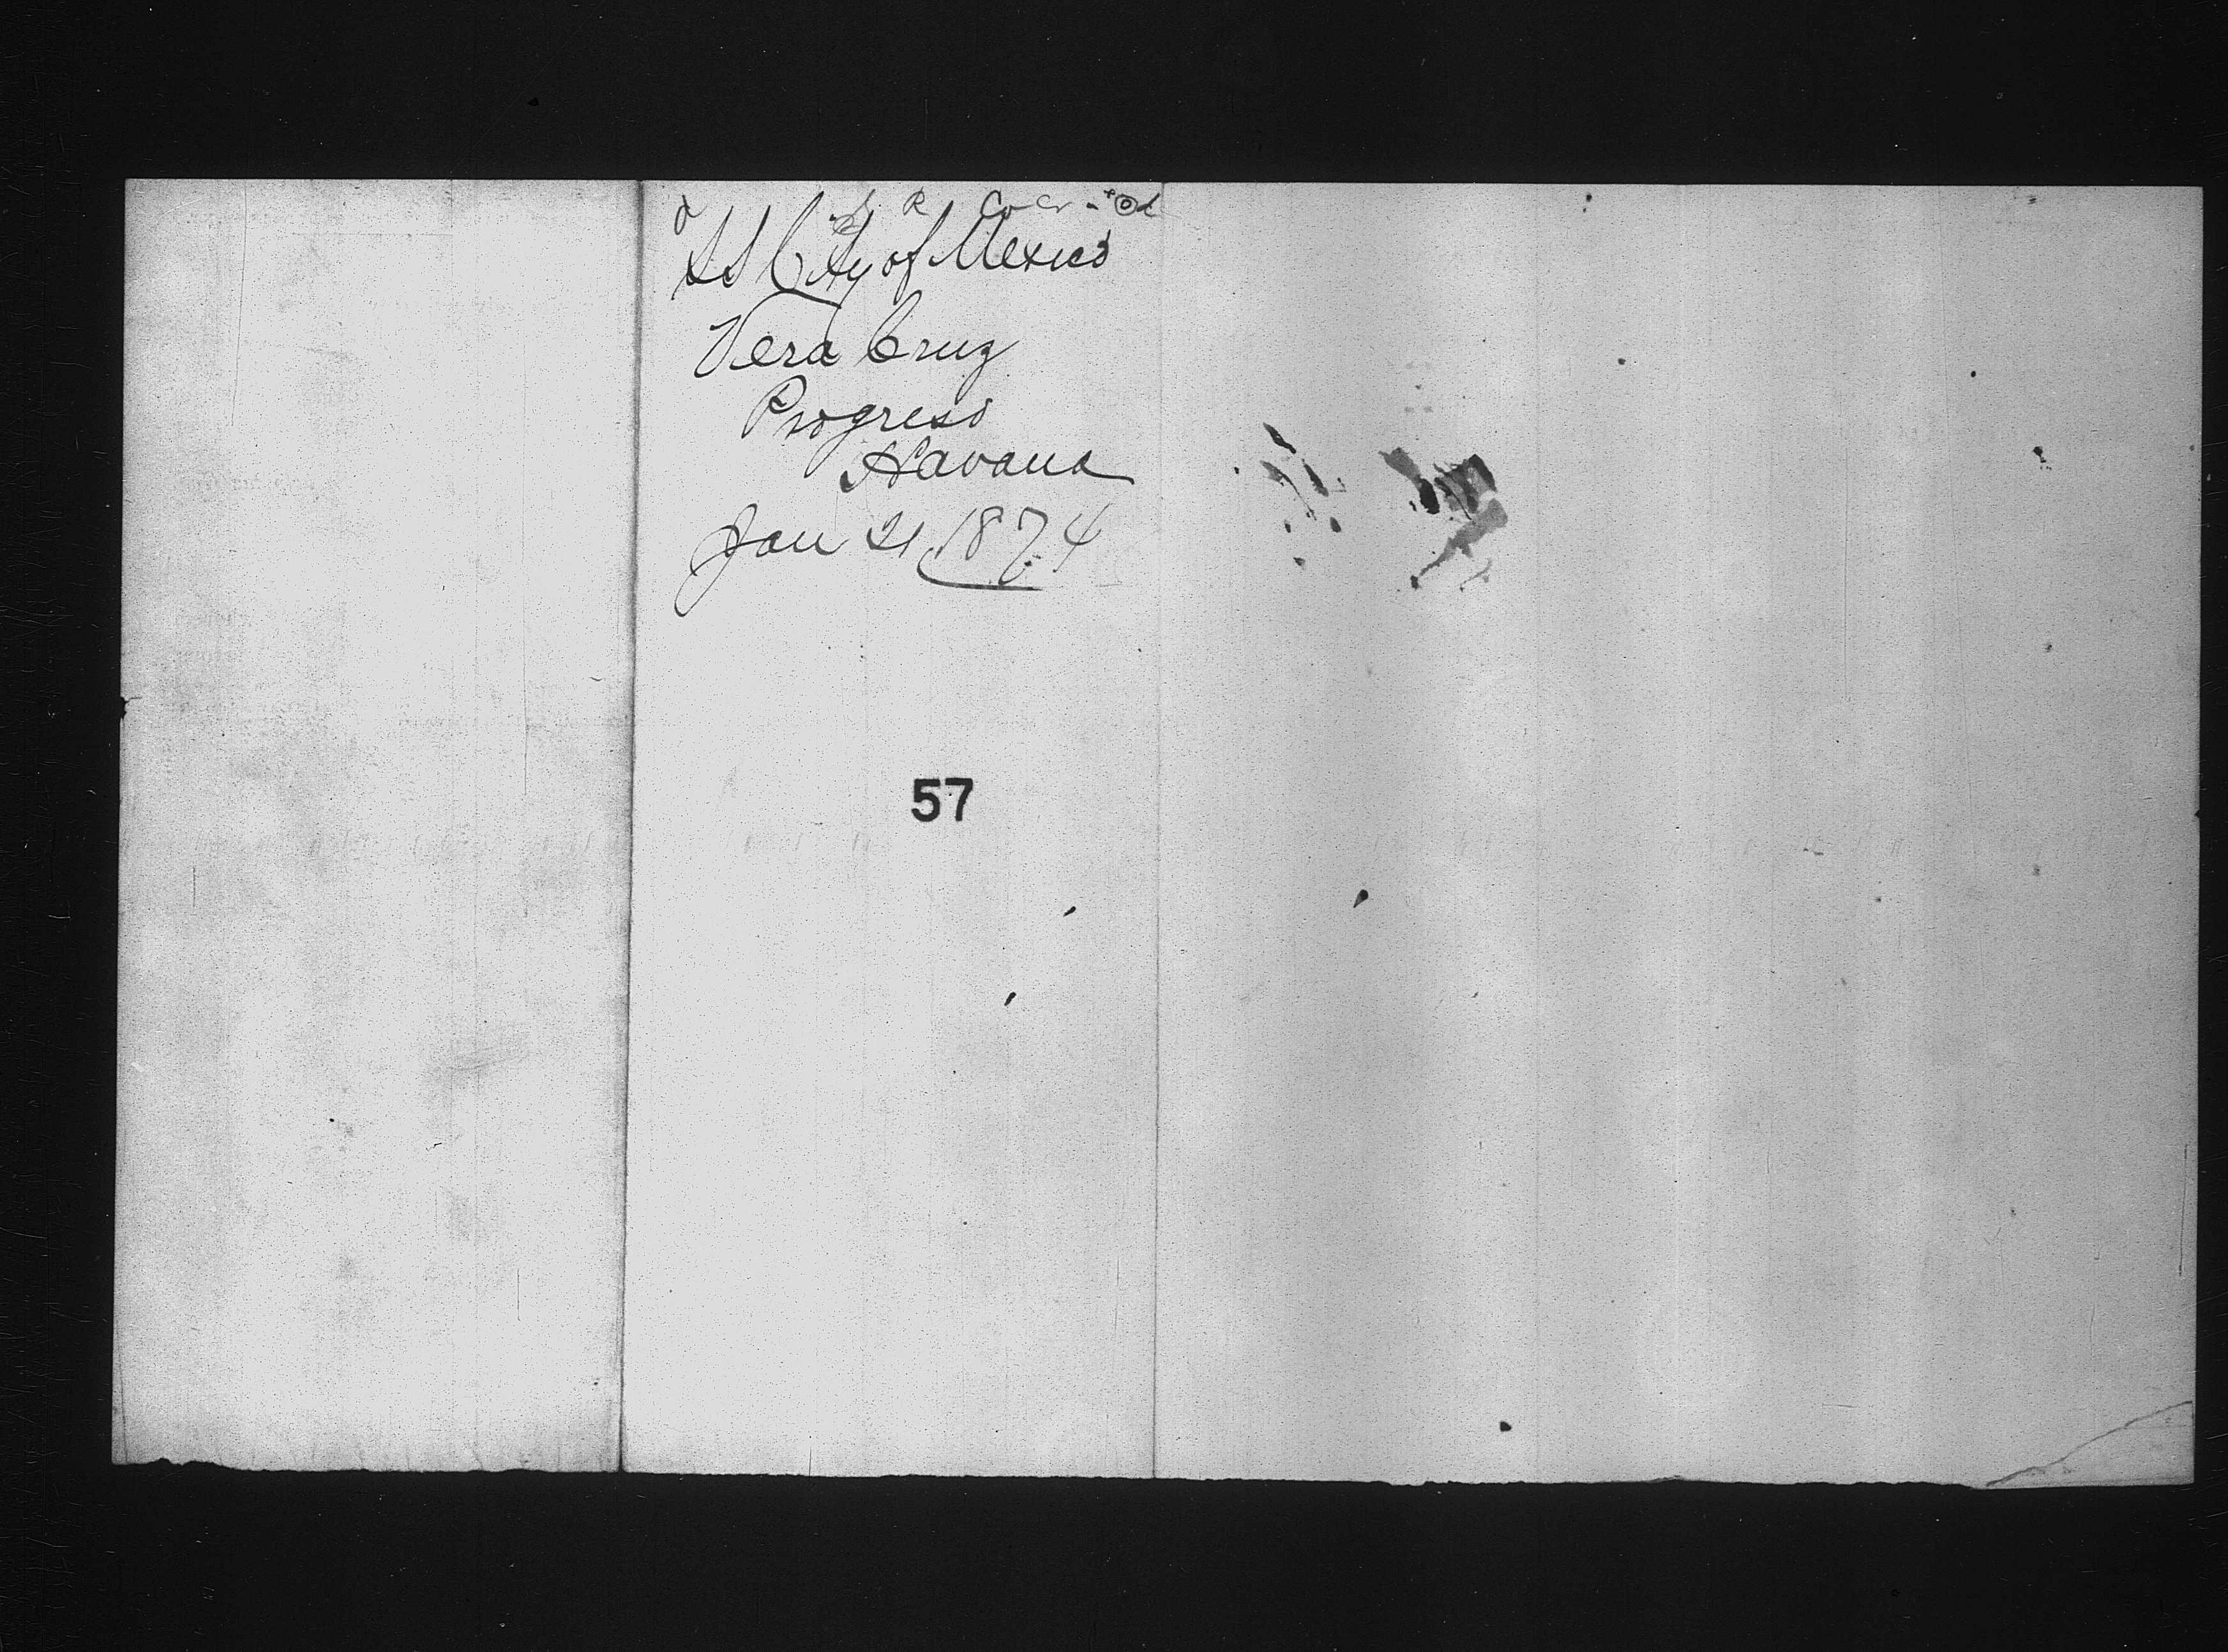 SS City of Mexico
Vera Cruz
Progreso
Havana
Jan 21 1874
57